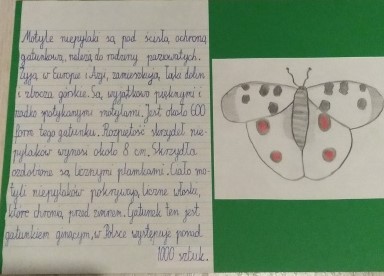 Motyle niepylaki są pod ścisłą ochroną
gatunkową, należą do rodziny paziowatych.
Żyją w Europie i Azji, zamieszkują łąki dolin
i zbocza górskie. Są, wyjątkowo pięknymi i
rzadko spotykanymi motylami. Jest około 600
form tego gatunku. Rozpiętość skrzydeł nie-
pylaków wynosi około 8 cm. Skrzydła
ozdobione są licznymi plamkami. Ciało mo-
tyli niepylaków pokrywają liczne włoski,
które chronią przed zimnem. Gatunek ten jest
gatunkiem ginącym, w Polsce występuje ponad
1000 sztuk.